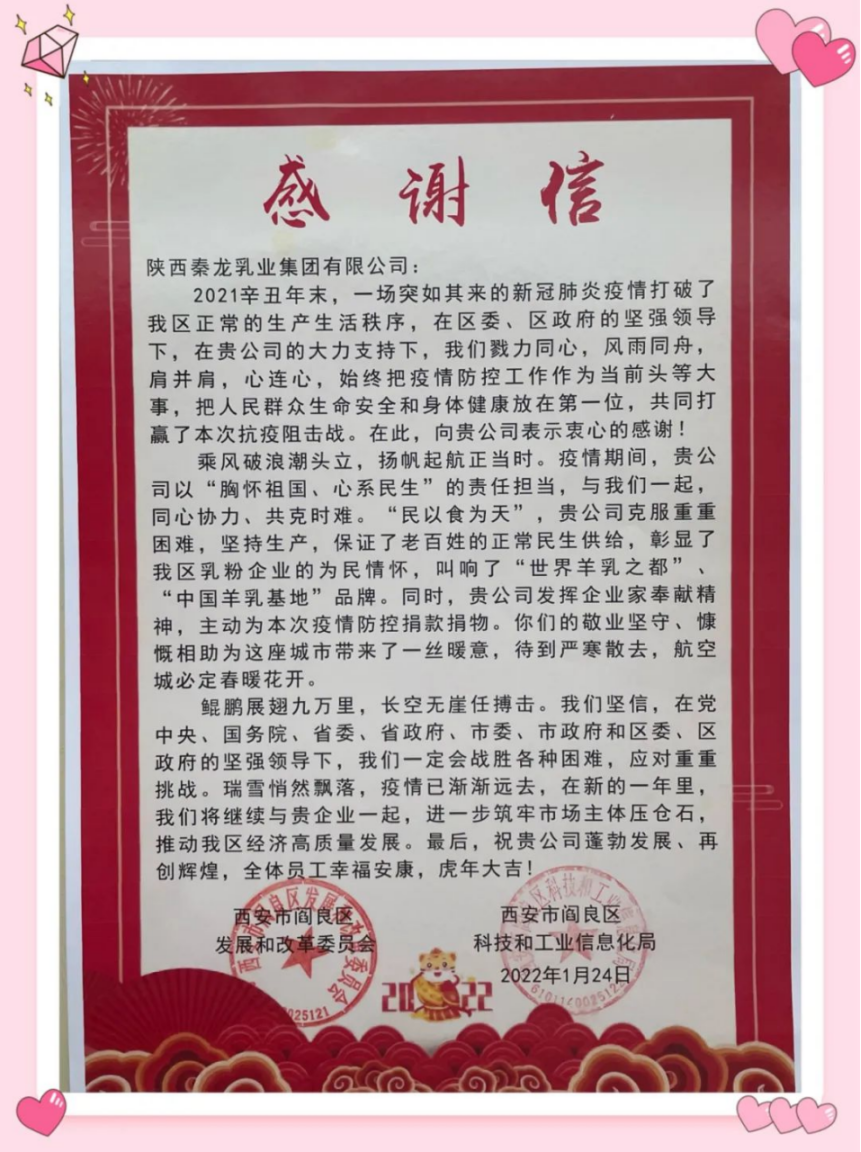 感谢信
陕西秦龙乳业集团有限公司：
2021辛丑年末，一场突如其来的新冠肺炎疫情打破了
我区正常的生产生活秩序，在区委、区政府的坚强领导
下，在贵公司的大力支持下，我们戮力同心，风雨同舟，
肩并肩，心连心，始终把疫情防控工作作为当前头等大
事，把人民群众生命安全和身体健康放在第一位，共同打
赢了本次抗疫阻击战。在此，向贵公司表示衷心的感谢！
乘风破浪潮头立，扬帆起航正当时。疫情期间，贵公
司以“胸怀祖国、心系民生”的责任担当，与我们一起，
同心协力、共克时难。“民以食为天”，贵公司克服重重
困难，坚持生产，保证了老百姓的正常民生供给，彰显了
我区乳粉企业的为民情怀，叫响了“世界羊乳之都”、
“中国羊乳基地”品牌。同时，贵公司发挥企业家奉献精
神，主动为本次疫情防控捐款捐物。你们的敬业坚守、慷
慨相助为这座城市带来了一丝暖意，待到严寒散去，航空
城必定春暖花开。
鲲鹏展翅九万里，长空无崖任搏击。我们坚信，在党
中央、国务院、省委、省政府、市委、市政府和区委、区
政府的坚强领导下，我们一定会战胜各种困难，应对重重
挑战。瑞雪悄然飘落，疫情已渐渐远去，在新的一年里，
我们将继续与贵企业一起，进一步筑牢市场主体压仓石，
推动我区经济高质量发展。最后，祝贵公司蓬勃发展、再
创辉煌，全体员工幸福安康，虎年大吉！
西安市阎良区
发展和改革委员会
西安市阎良区
科技和工业信息化局
2022年1月24日
2022